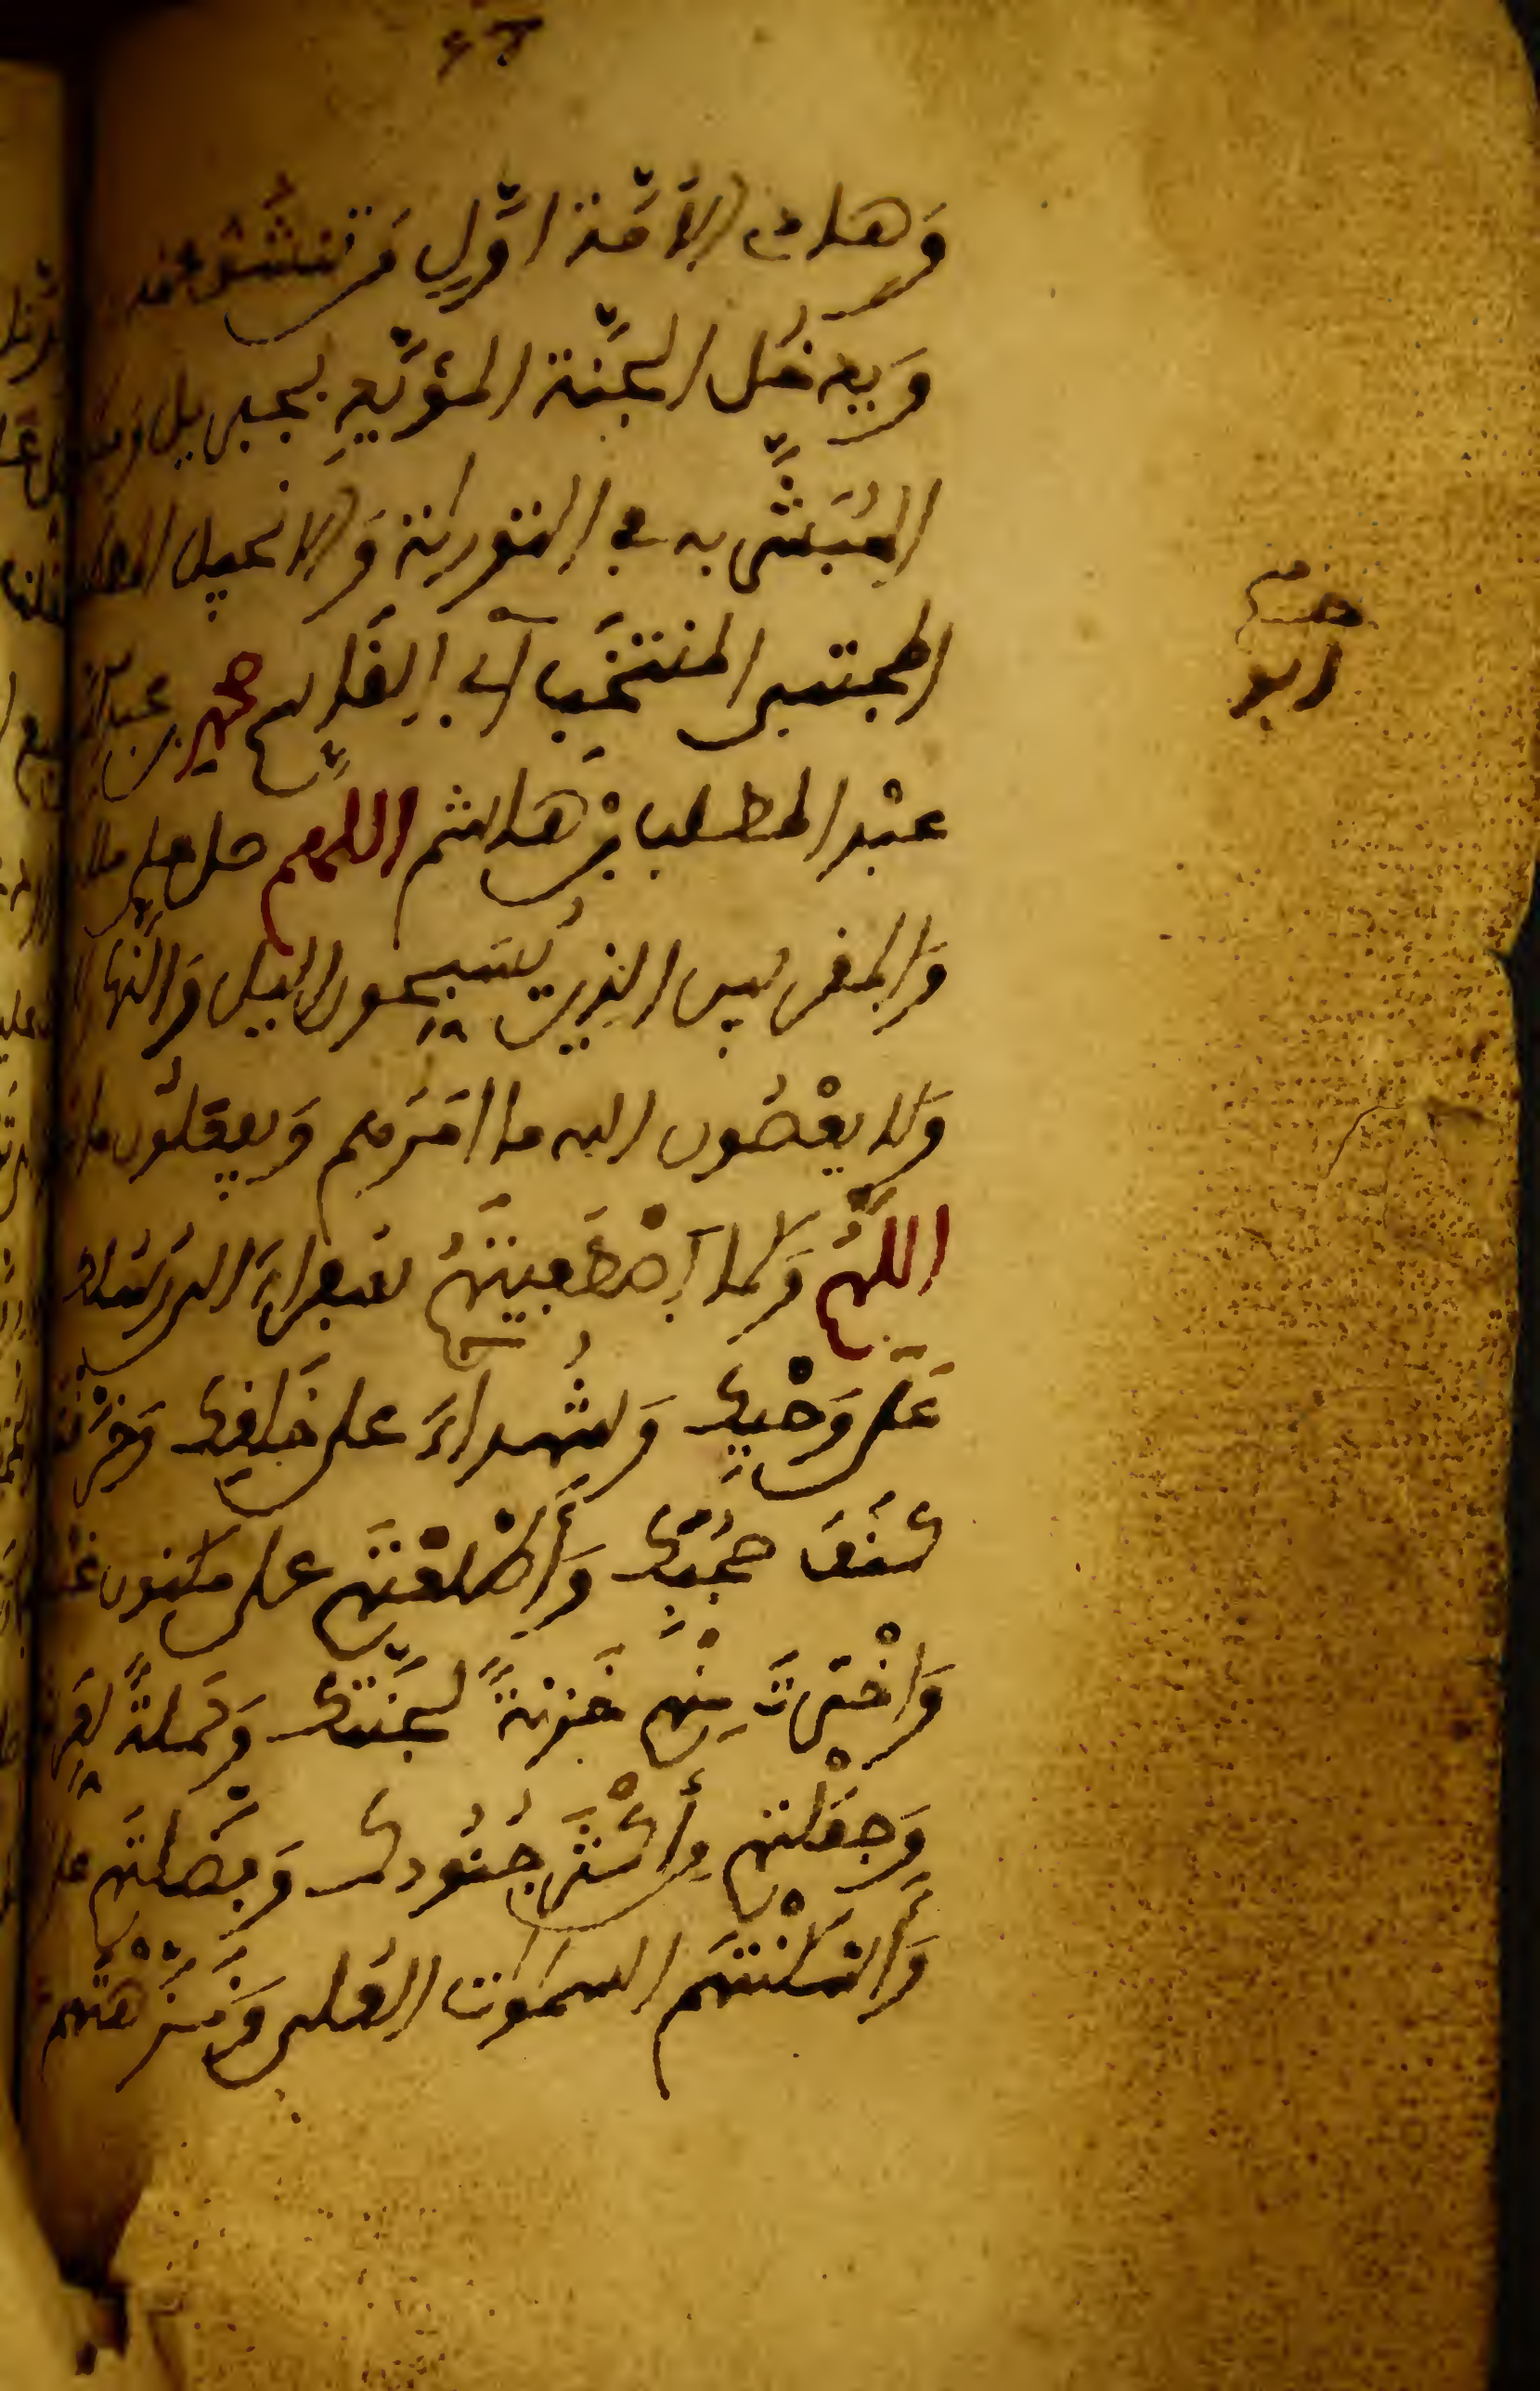 وَهادي الأمّة أوّل من تنشق عنه
وَيدخل الجنّة المؤيّد بجبريل وميكا
المُبَشَّر به في التورية وَالانجيل المصط
المجتبى المنتخَب أبي القاسم محمد بن عبد الله
عبْد المطلب بن هاشم اللهم صل على ملا
وَالمقربين الذين يُسَبِّحون اليل وَالنها
وَلا يعْصُون الله ما امَرَهم وَيفعلُون ما
اللهُمّ وَكما اصْطَفيتَهُم سُفراءَ الى رسُلك
عَلى وَحْيِك وَشُهداءَ على خَلقِك وَخرَقت
كُنُفَ حُجُبِك وَأطْلعْتَهم على مكنون غيْ
وَاخْترتَ مِنْهم خَزنةً لجَنّتك وَحَملةً لِعَر
وَجعَلْتهم مِن أكْثر جُنُودك وَفضّلتَهم على
وَأسْكَنْتَهم السموات العُلى وَنزّهْتَهم